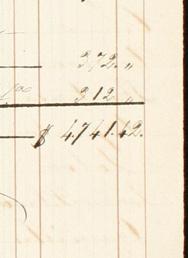 372. "
312 "
$ 4.741.42.